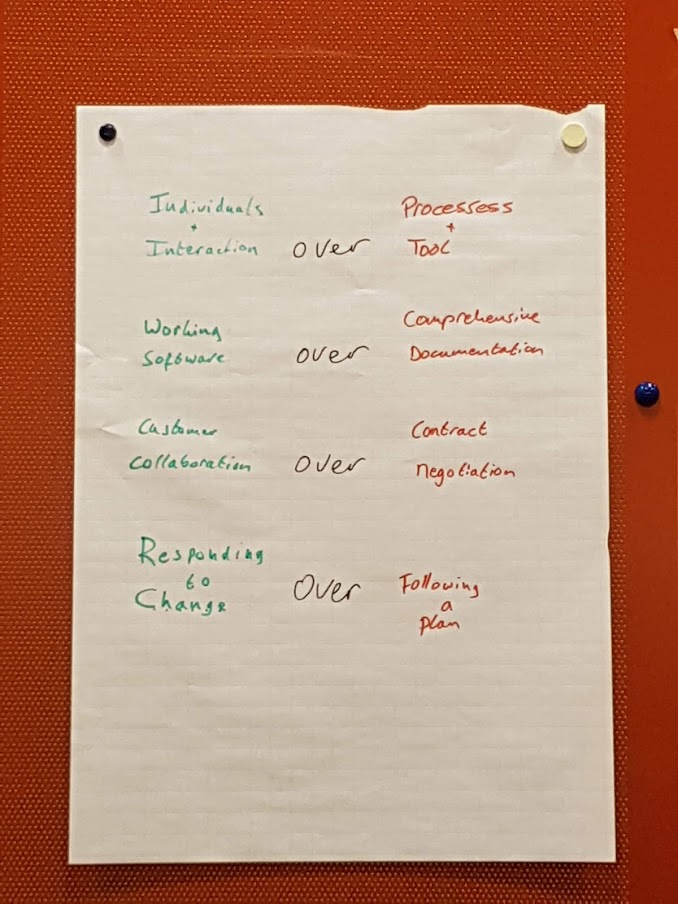 Individuals
+
Interaction over Processess
+
Tool
Working
Software over Comprehensive
Documentation
Customer
Collaboration over Contract
Negotiation
Responding
to
Change Over Following
a
plan